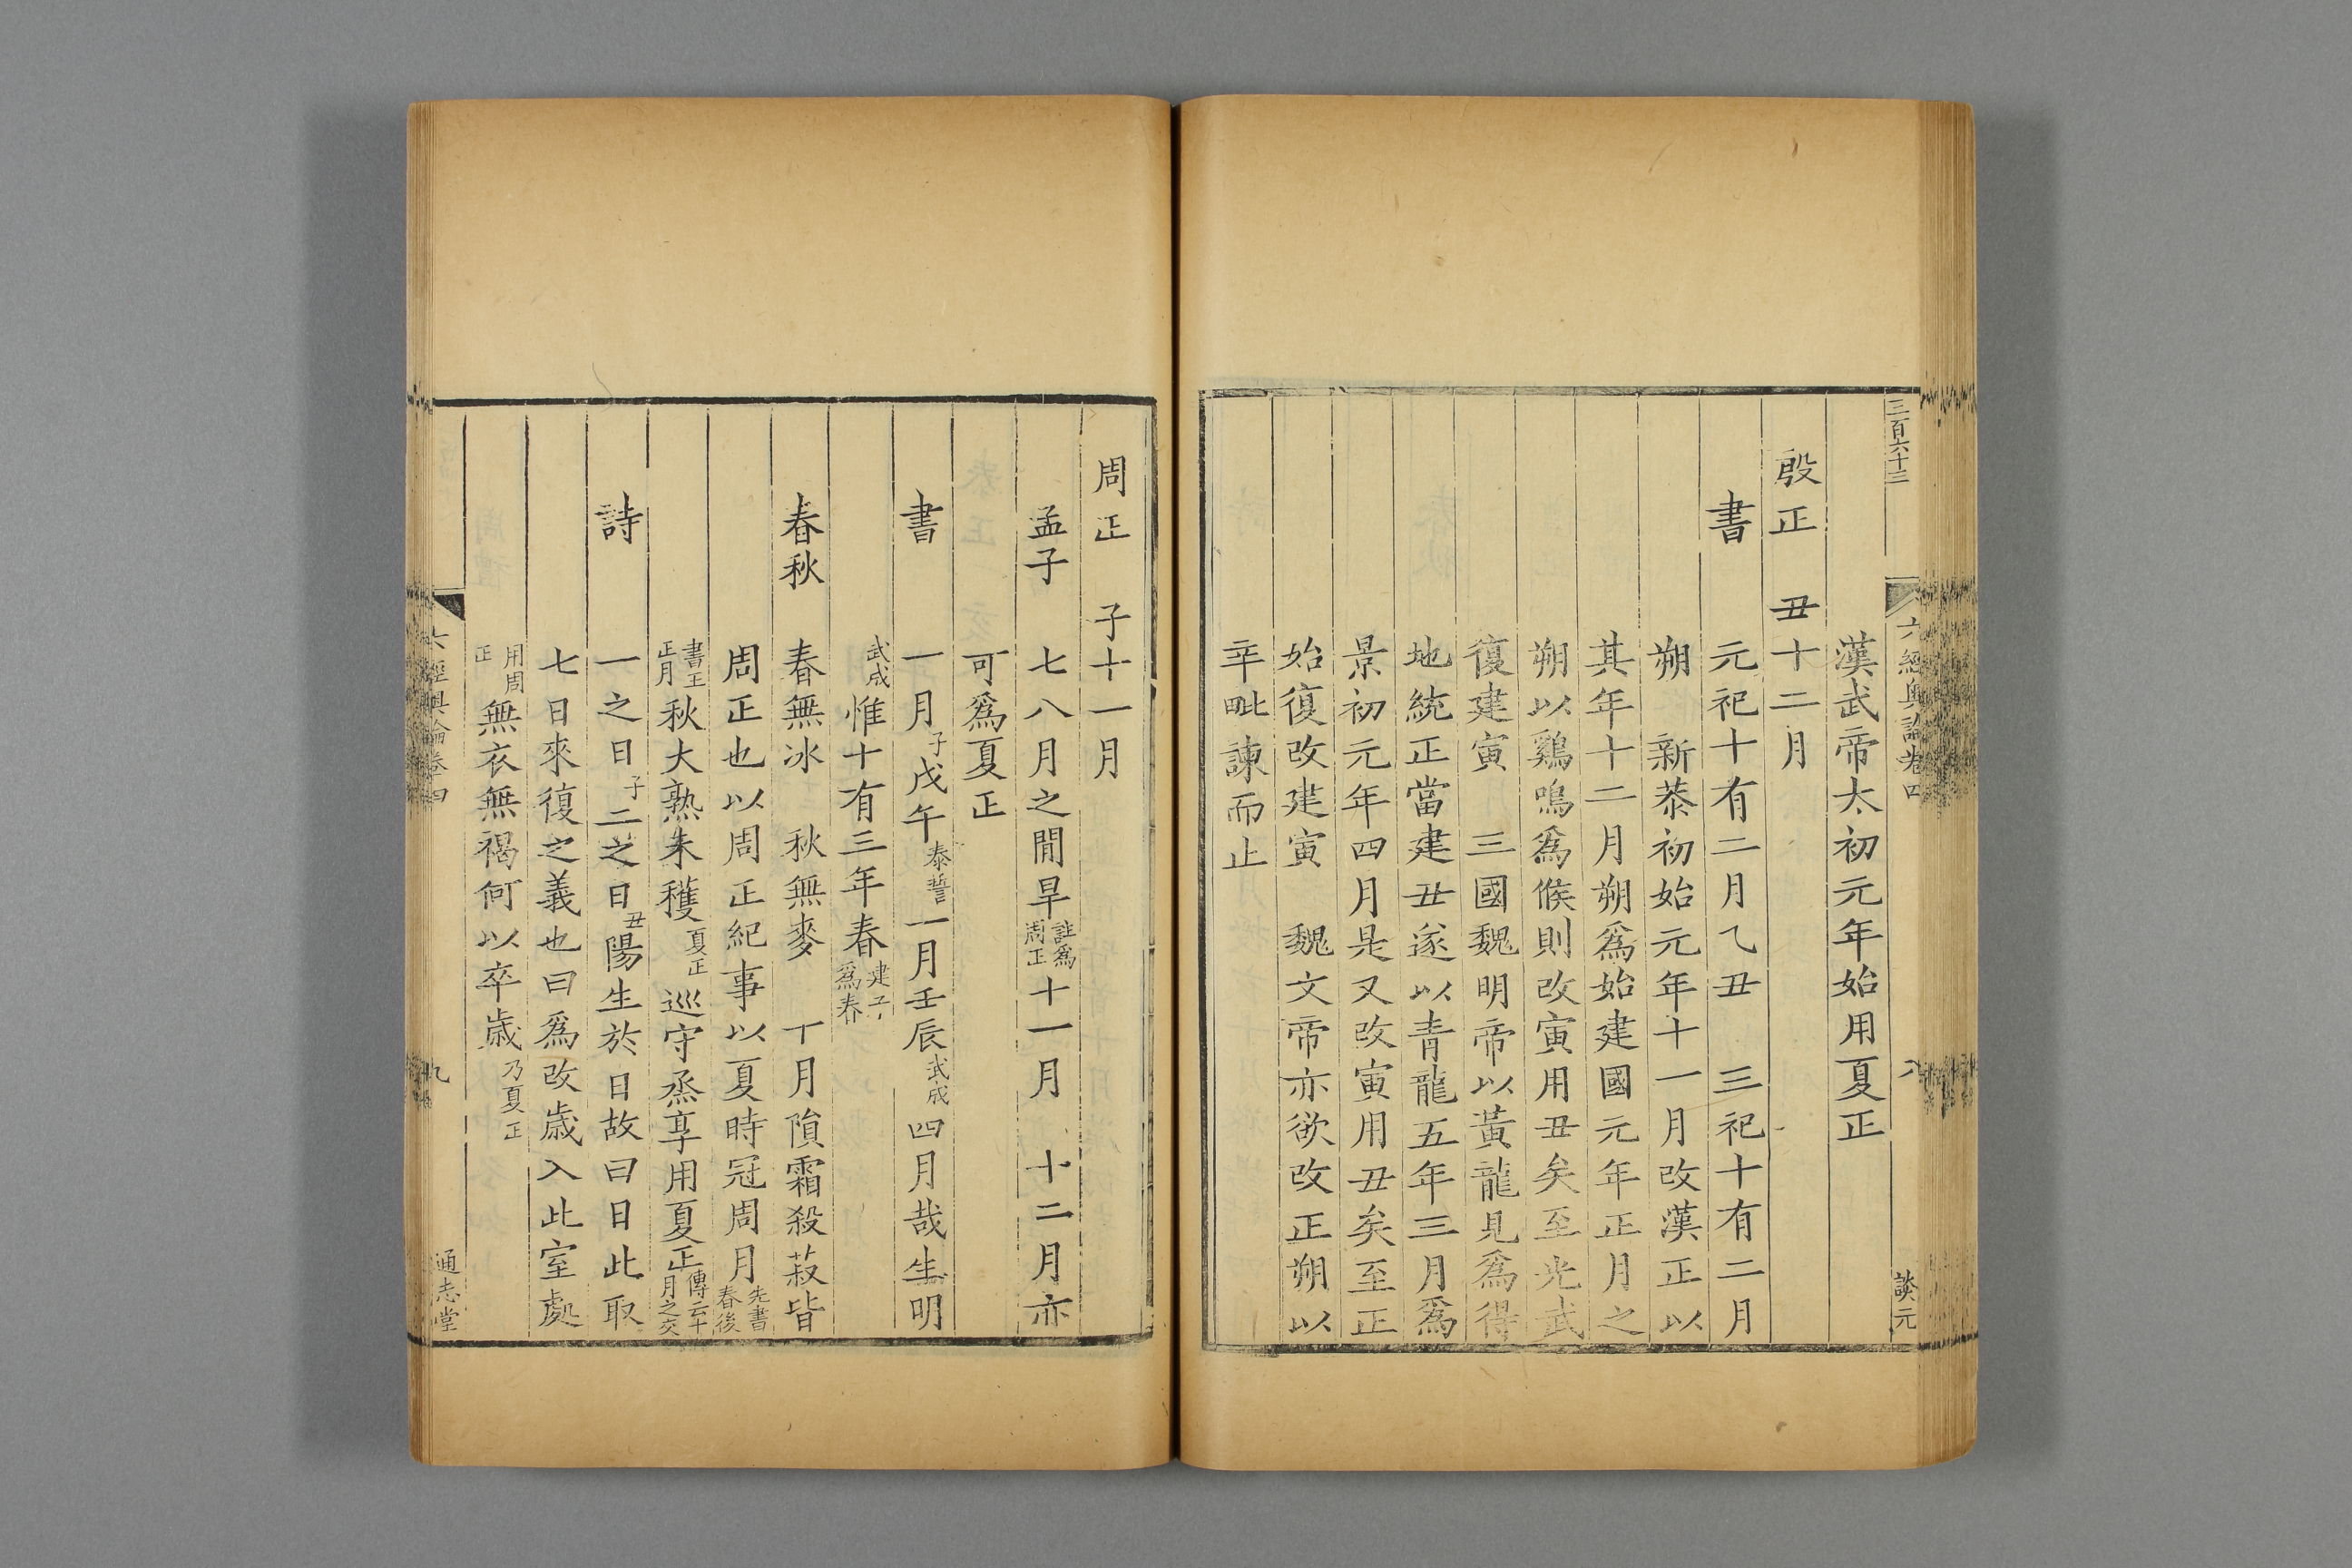 三百六十三
六經奧論卷四
八
談元
漢武帝太初元年始用夏正
殷正 丑十二月
書 元祀十有二月乙丑 三祀十有二月
朔 新莽初始元年十一月改漢正以
其年十二月朔爲始建國元年正月之
朔以鷄鳴爲候則改寅用丑矣至光武
復建寅 三國魏明帝以黃龍見爲得
地統正當建丑遂以青龍五年三月爲
景初元年四月是又改寅用丑矣至正
始復改建寅 魏文帝亦欲改正朔以
辛毗諫而止
周正 子十一月
孟子 七八月之閒旱註爲周正十一月 十二月亦
可爲夏正
書 一月子戊午泰誓一月壬辰武成四月哉生明
武成惟十有三年春建子爲春
春秋 春無冰 秋無麥 十月隕霜殺菽皆
周正也以周正紀事以夏時冠周月先書春後
書王正月秋大熟未穫夏正巡守烝享用夏正傳云千月之交
詩 一之日子二之日丑陽生於日故曰日此取
七日來復之義也曰爲改歲入此室處
用周正無衣無褐何以卒歲乃夏正
六經奧論卷四
九
通志堂